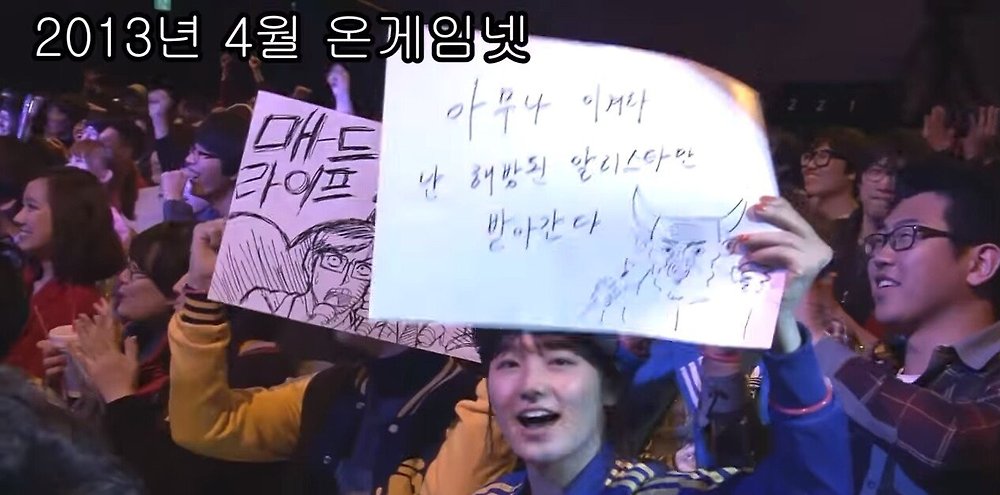 2013년 4월 온게임넷
매드
라이프
아무나 이겨라
난 해방된 알리스타만
받아간다
221